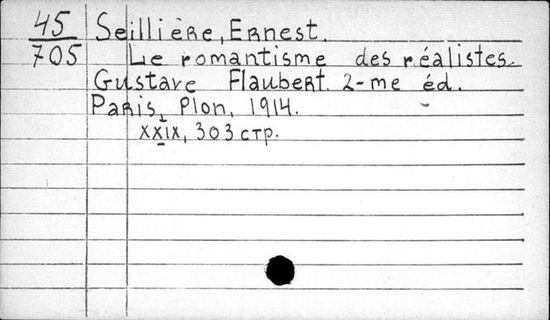 45 Seillière, Ernest.
705 Le romantisme des réalistes.
Gustave Flaubert. 2-me éd.
Paris, Plon, 1914.
XXIX, 303 стр.